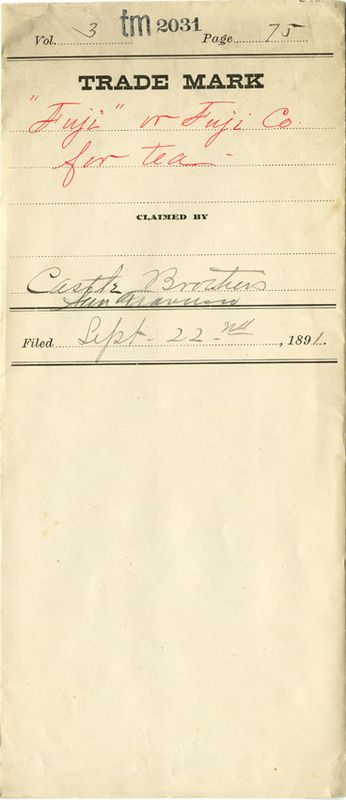 tm 2031
Vol. 3 Page 75
TRADE MARK
"Fuji" or Fuji Co.
for tea
CLAIMED BY
Castle Brothers
San Francisco
Filed Sept. 22nd, 1891.